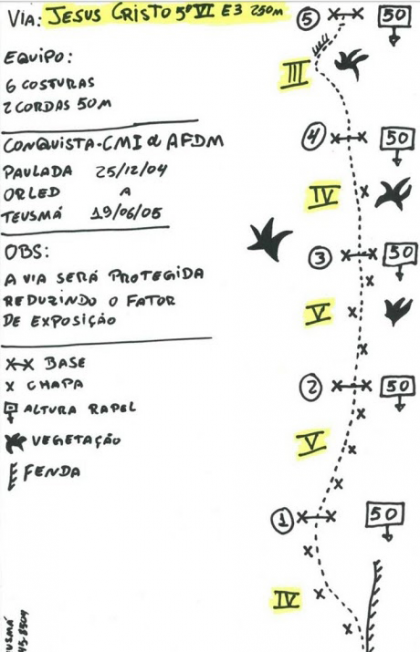 VIA: JESUS CRISTO 5º VI E3 250m
EQUIPO:
6 COSTURAS
2 CORDAS 50M
CONQUISTA-CMI & AFDM
PAULADA 25/12/04
ORLED A
TEUSMÁ 19/06/05
OBS:
A VIA SERÁ PROTEGIDA
REDUZINDO O FATOR
DE EXPOSIÇÃO
X-X BASE
X CHAPA
ALTURA RAPEL
VEGETAÇÃO
FENDA
5 50
III
4 50
IV
3 50
V
2 50
V
1 50
IV